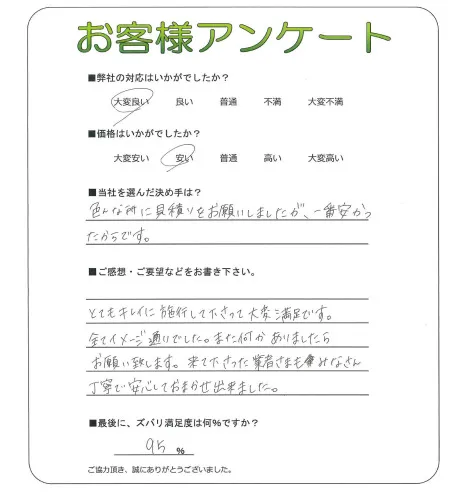 お客様アンケート
■弊社の対応はいかがでしたか？
大変良い 良い 普通 不満 大変不満
■価格はいかがでしたか？
大変安い 安い 普通 高い 大変高い
■当社を選んだ決め手は？
色んな所に見積りをお願いしましたが、一番安かっ
たからです。
■ご感想・ご要望などをお書き下さい。
とてもキレイに施行して下さって大変満足です。
全てイメージ通りでした。また何かありましたら
お願い致します。来て下さった業者さまもみなさん
丁寧で安心しておまかせ出来ました。
■最後に、ズバリ満足度は何％ですか？
95 ％
ご協力頂き、誠にありがとうございました。